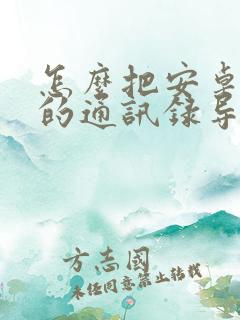 怎麼把安卓
的通訊錄导
方志國
未经同意禁止转载